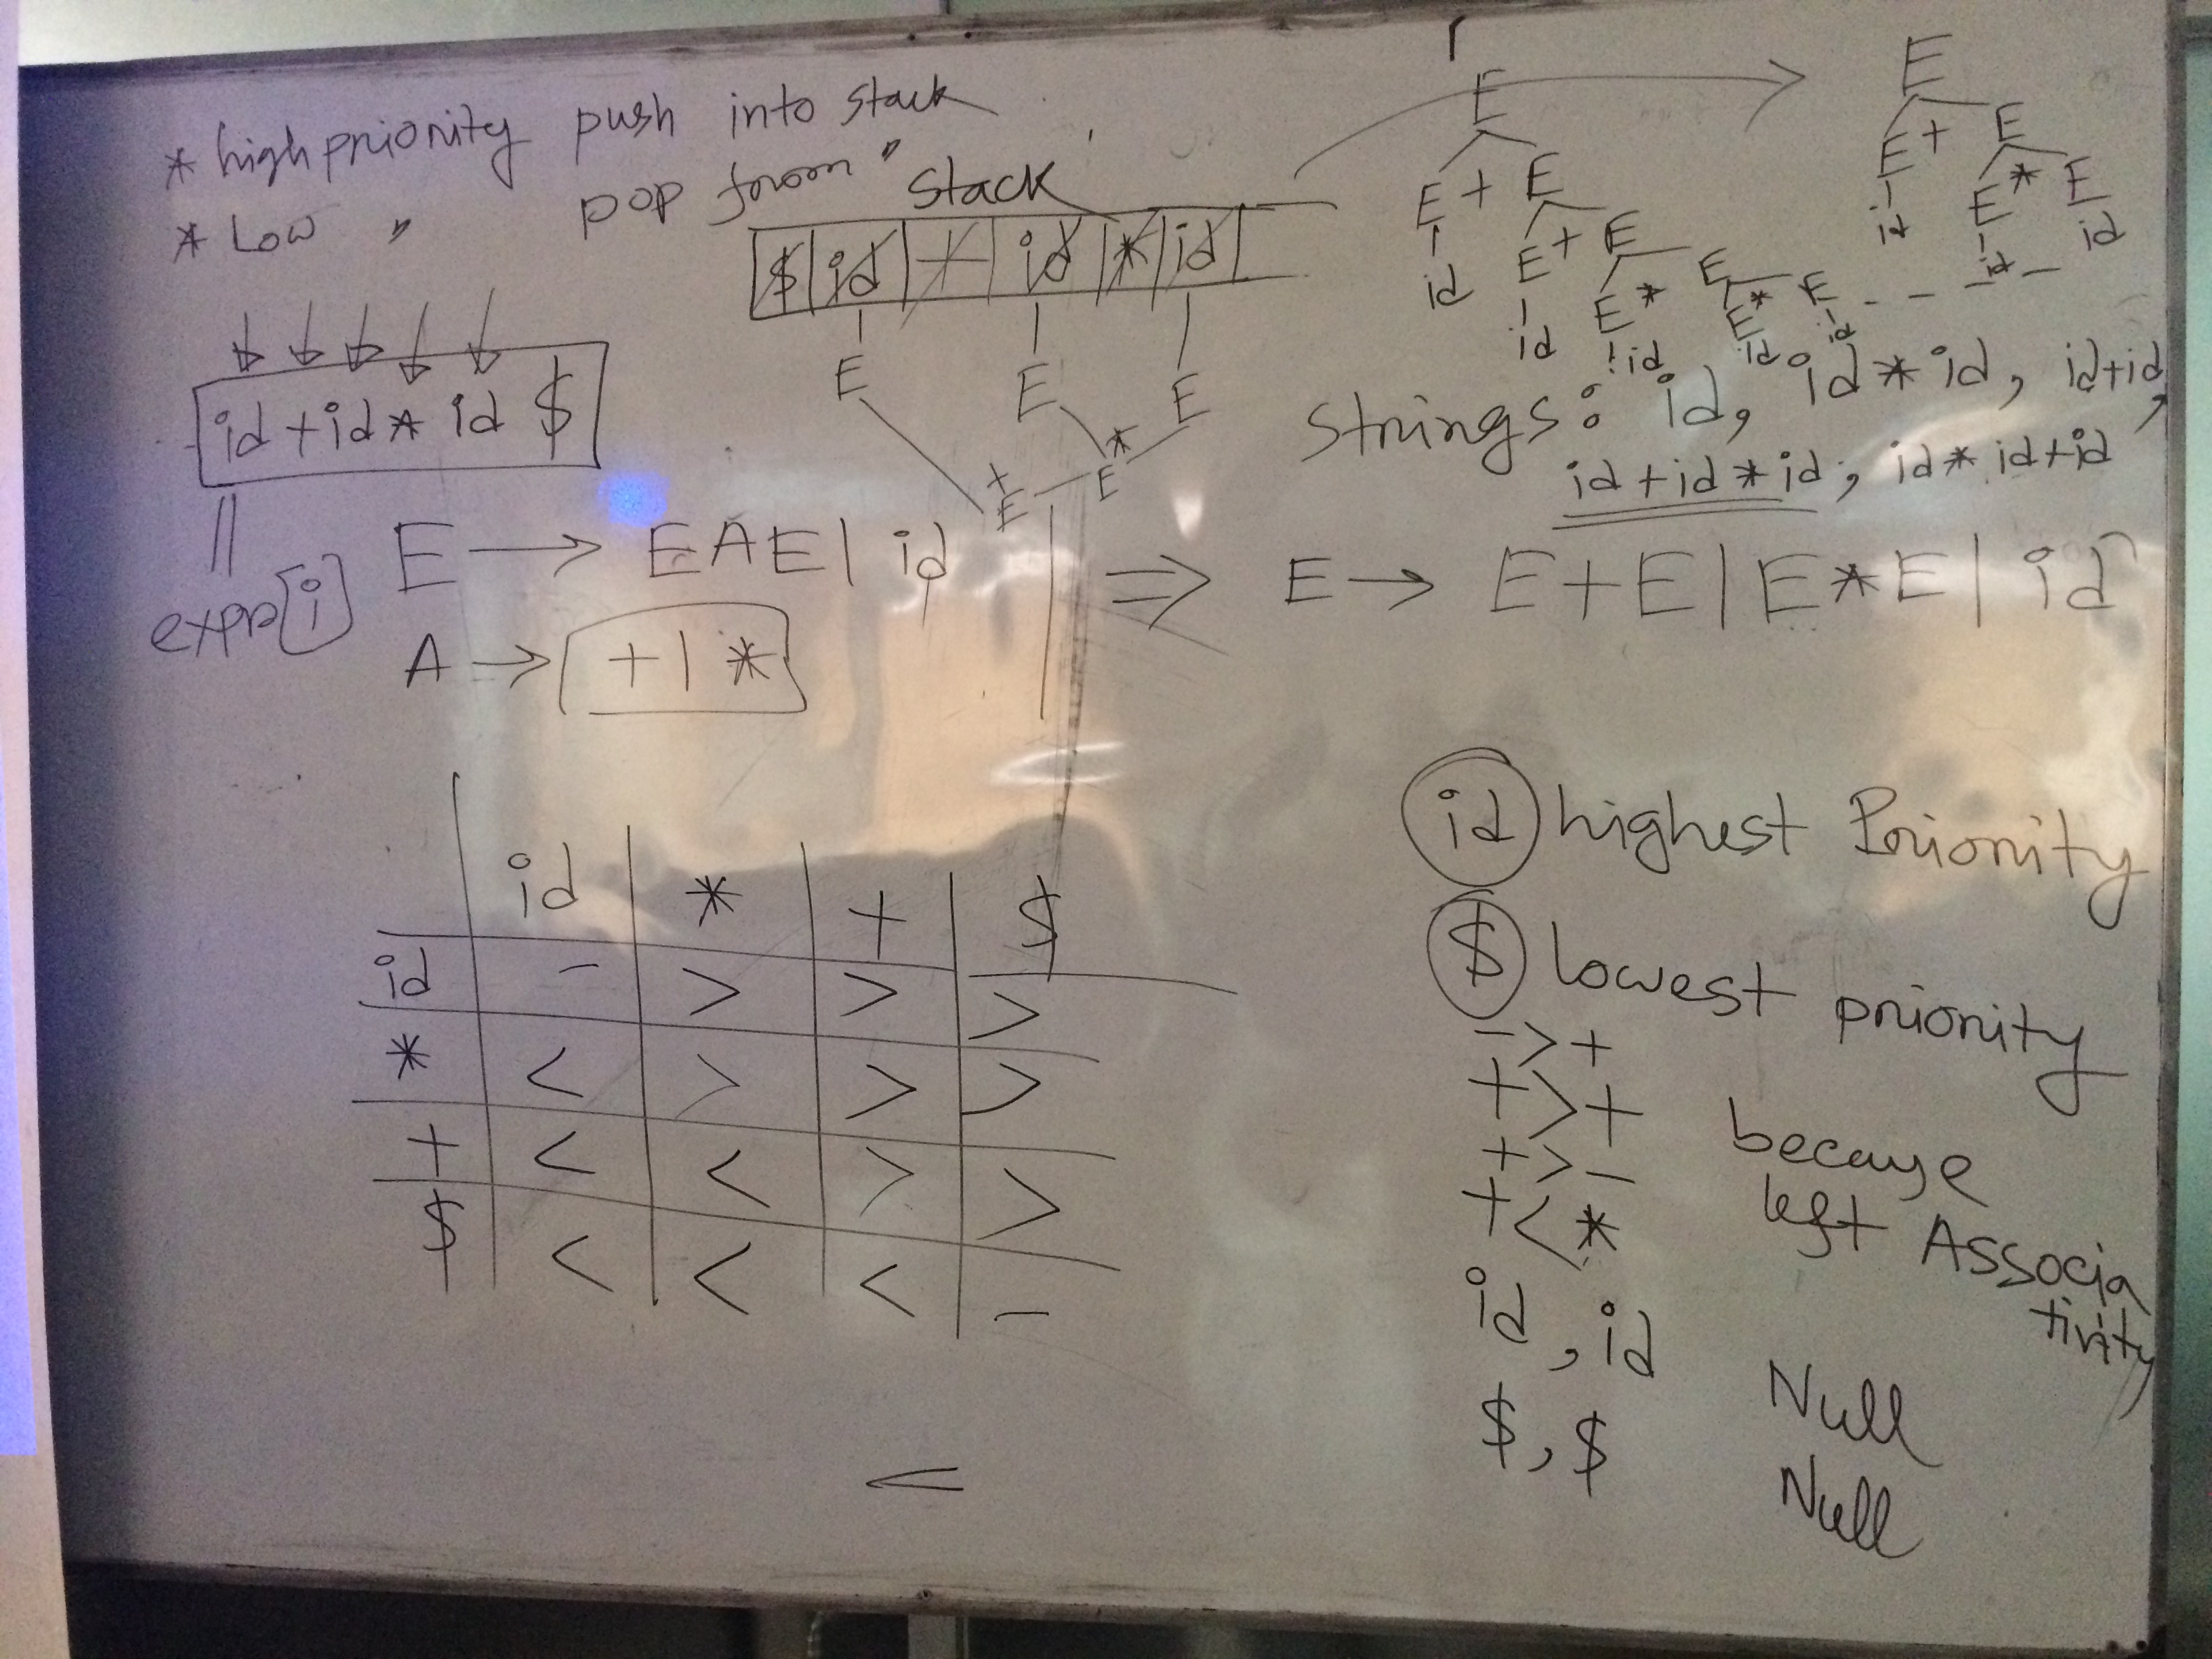 * high priority push into stack
* Low " pop from "
Stack
$ | id | + | id | * | id
E E E
*
E
+
E
id + id * id $
expr[i]
E → EAE | id
A → + | *
⇒ E → E + E | E * E | id
E
E + E
id E + E
id E * E
id E * E
id id
E
E + E
id E * E
id id
Strings : id, id * id, id+id,
id + id * id, id * id + id
id * + $
id - > > >
* < > > >
+ < < > >
$ < < < -
<
id highest Priority
$ lowest priority
- > +
+ > +
+ > -
+ < *
because
left Associa
tivity
id , id Null
$ , $ Null